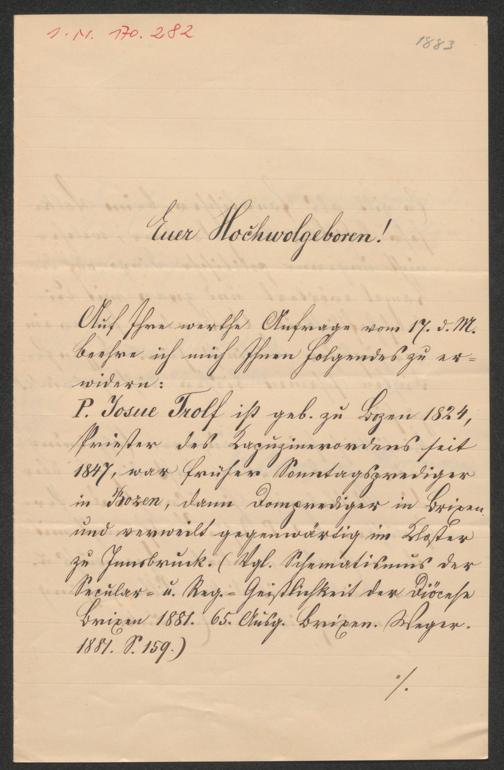 I. N. 170.282
1883
Euer Hochwolgeboren!
Auf Ihre werthe Anfrage vom 17. d. M.
beehre ich mich Ihnen Folgendes zu er=
widern:
P. Josue Trolf ist geb. zu Bozen 1824,
Priester des Kapuzinerordens seit
1847, war früher Sonntagsprediger
in Bozen, dann Domprediger in Brixen
und verweilt gegenwärtig im Kloster
zu Innsbruck. (Vgl. Schematismus der
Secular= u. Reg.= Geistlichkeit der Diöcese
Brixen 1881. 65. Ausg. Brixen. Weger.
1881. S. 159.)
./.